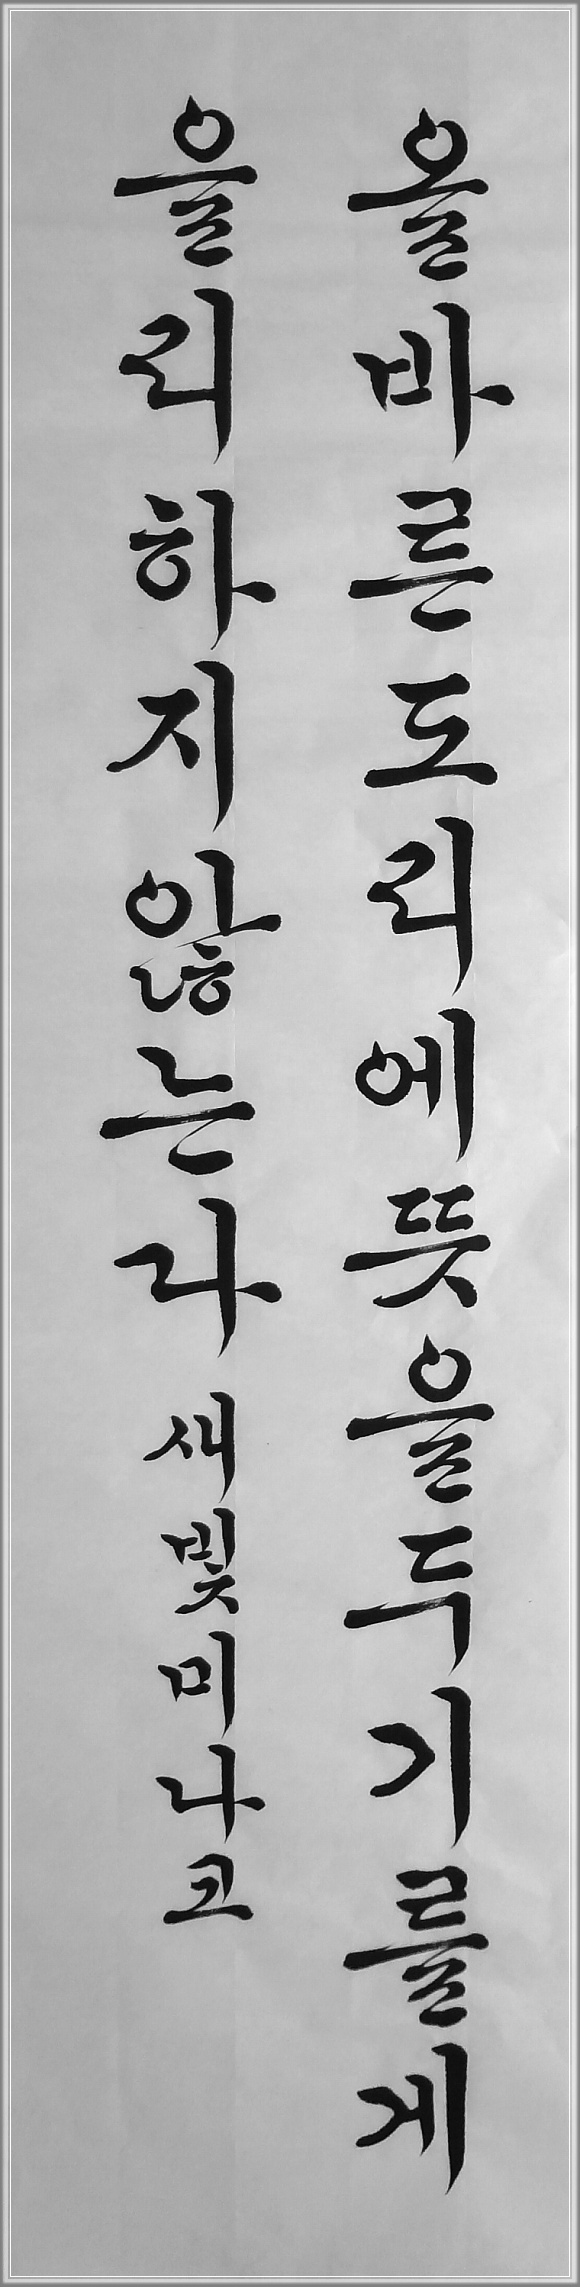 올바른도리에뜻을두기를게
을리하지않는다 새빛미나코